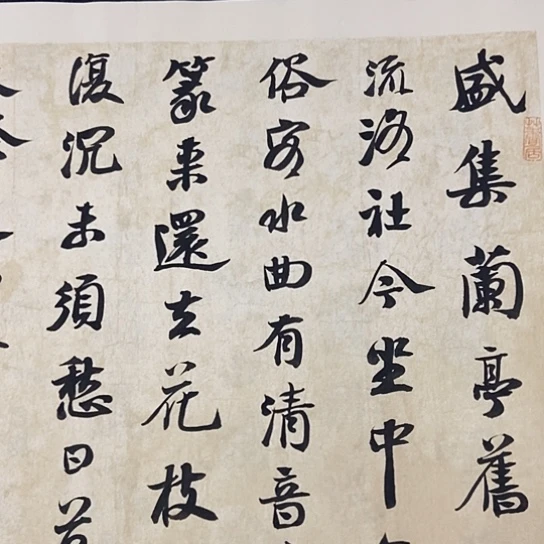 盛集蘭亭舊
流洛社今坐中
俗客水曲有清音
篆来還去花枝
復沉未須愁日